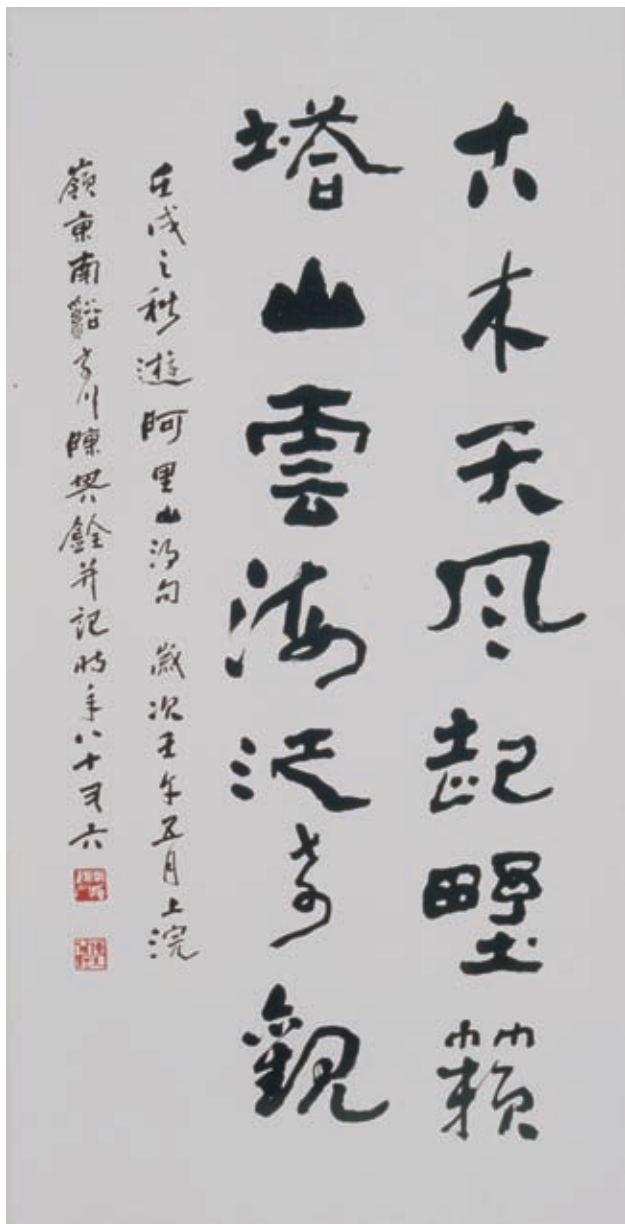 古木天风起墅籟
塔山雲海泛奇觀
壬戌之秋遊阿里山得句 歲次壬午五月上浣
嶺東南谿奇川陳其銓并記時年八十又六